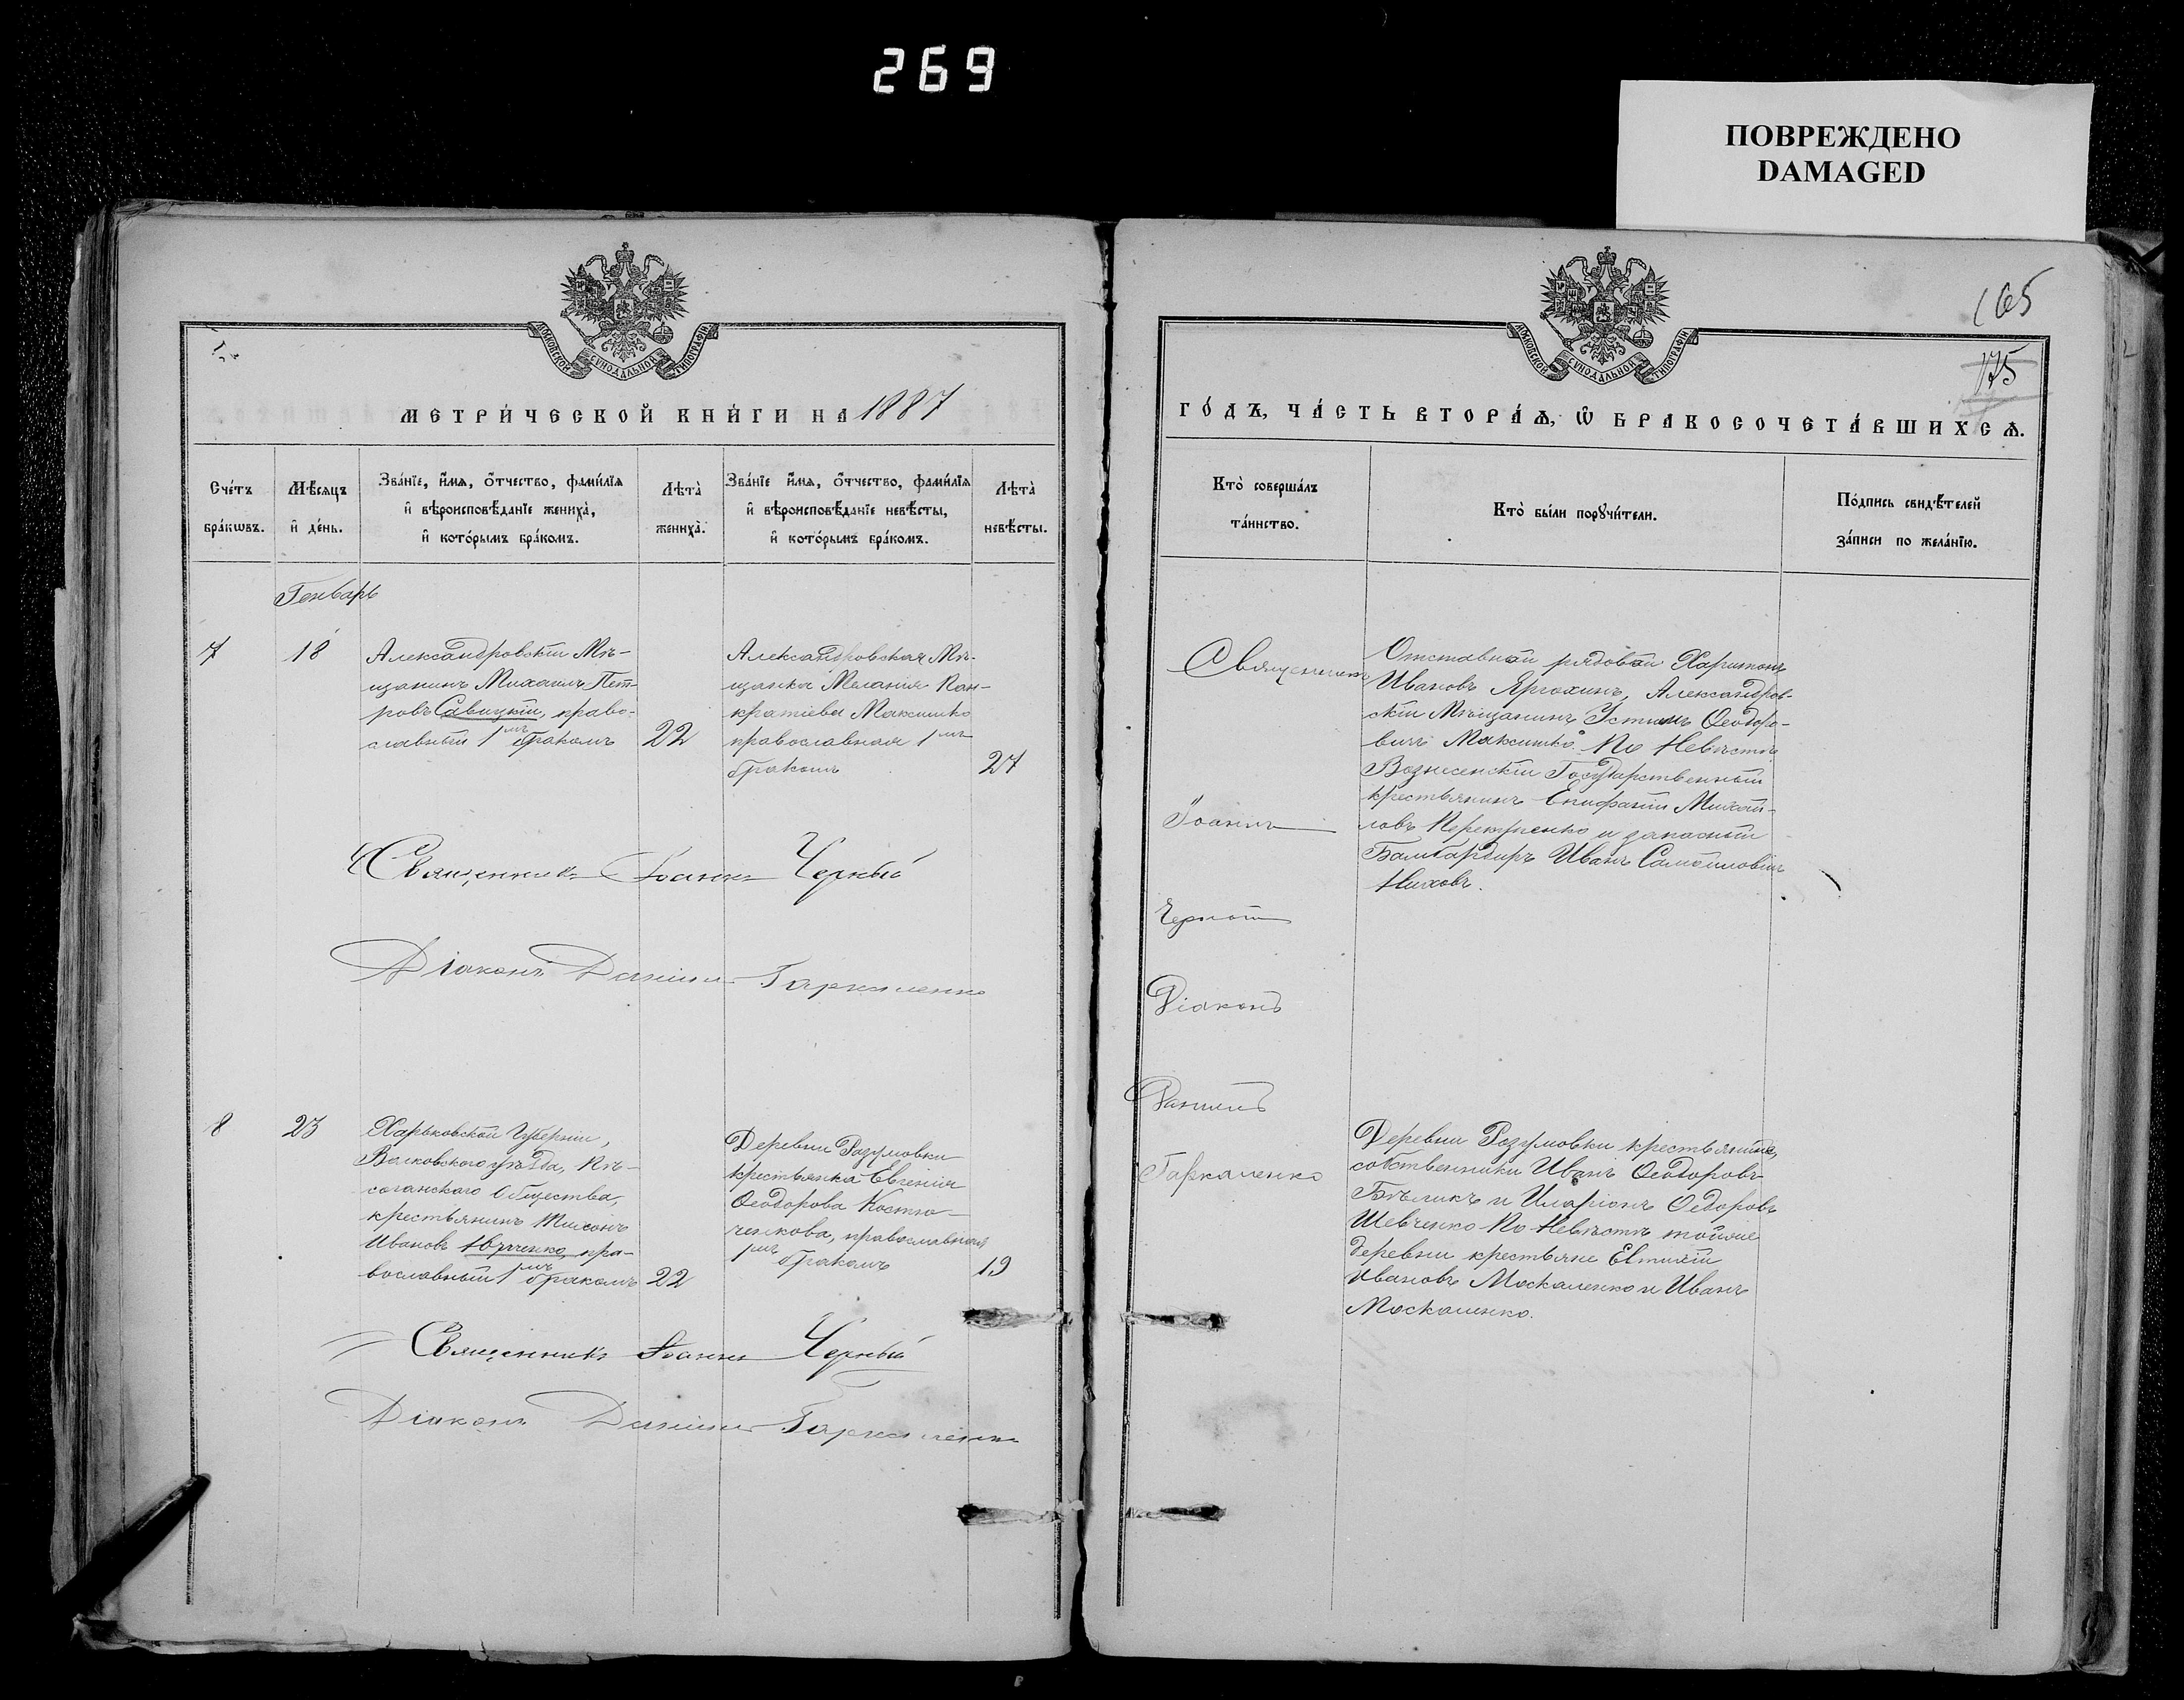 269
ПОВРЕЖДЕНО
DAMAGED
МОСКОВСКОЙ СѴНОДАЛЬНОЙ ТИПОГРАФІИ
МОСКОВСКОЙ СѴНОДАЛЬНОЙ ТИПОГРАФІИ
165
175
МЕТРИ́ЧЕСКОЙ КНИ́ГИ НА 1887
ГО́ДЪ, ЧА́СТЬ ВТОРА́Ѧ, Ѿ БРАКОСОЧЕТА́ВШИХСѦ.
Сче́тъ
бра́кѡвъ.
Мѣ́сяцъ
и҆ де́нь.
Зва́нїе, и҆́мѧ, ѻ҆́тчество, фами́лїѧ
и҆ вѣроисповѣ́данїе жениха̀,
и҆ кото́рымъ бра́комъ.
Лѣта̀
жениха̀.
Зва́нїе и҆́мѧ, ѻ҆́тчество, фами́лїѧ
и҆ вѣроисповѣ́данїе невѣ́сты,
и҆ кото́рымъ бра́комъ.
Лѣта̀
невѣ́сты.
Кто̀ соверша́лъ
та́инство.
Кто̀ бы́ли порꙋчи́тели.
По́дпись свидѣ́телей
за́писи по жела́нїю.
Генварь
7
18
Александровскій Мѣ-
щанинъ Михаилъ Пет-
ровъ Савицкій, право-
славный 1мъ бракомъ
22
Александровская Мѣ-
щанка Меланія Пан-
кратіева Максимко
православная 1мъ
бракомъ
27
Священникъ
Іоаннъ
Черный
Діаконъ
Даніилъ
Гаркаленко
Отставной рядовой Харитонъ
Ивановъ Ярохинъ, Александров-
скій Мѣщанинъ Устинъ Ѳеодоро-
вичъ Максимко. По Невѣстѣ
Вознесенскій Государственный
крестьянинъ Епифаній Михай-
ловъ и запасный
Бамбардиръ Иванъ Самойловичъ
Священникъ Іоаннъ Черный
Діаконъ Даніилъ Гаркаленко
8
23
Харьковской Губерніи,
Валковского уѣзда,
Общества,
крестьянинъ
Ивановъ пра-
вославный 1мъ бракомъ
22
Деревни Разумовки
крестьянка Евгенія
Ѳеодорова Костю-
ченкова, православная
1мъ бракомъ
19
Деревни Разумовки крестьяне,
собственники Иванъ Ѳеодоровъ
Бѣликъ и Иларіонъ Ѳедоровъ
Шевченко По Невѣстѣ тойже
деревни крестьяне Евтихій
Ивановъ Москаленко и Иванъ
Москаленко.
Священникъ Іоаннъ Черный
Діаконъ Даніилъ Гаркаленко